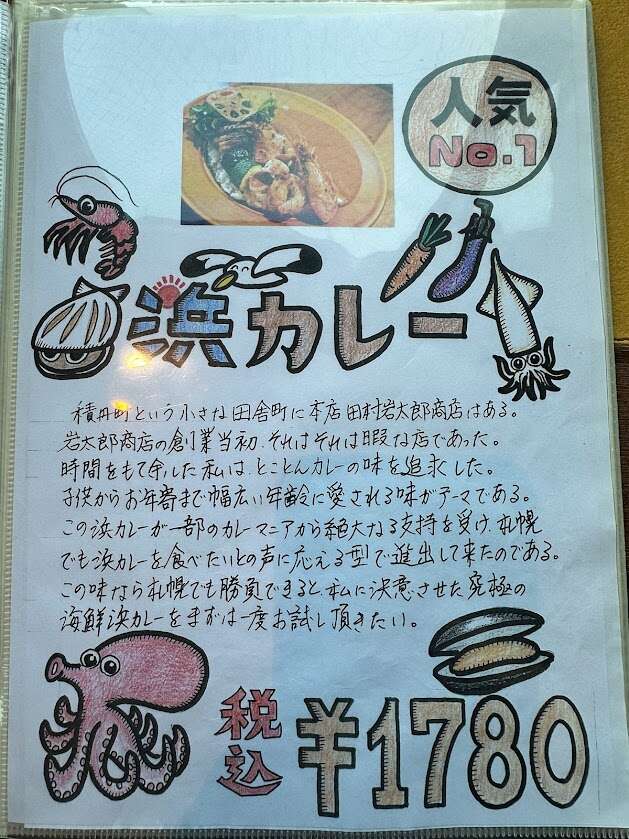 人気
No.1
浜カレー
積丹町という小さな田舎町に本店田村岩太郎商店はある。
岩太郎商店の創業当初、それはそれは暇な店であった。
時間をもて余した私は、とことんカレーの味を追求した。
子供からお年寄まで幅広い年齢に愛される味がテーマである。
この浜カレーが一部のカレーマニアから絶大なる支持を受け、札幌
でも浜カレーを食べたいとの声に応える型で進出して来たのである。
この味なら札幌でも勝負できると、私に決意させた究極の
海鮮浜カレーをまずは一度お試し頂きたい。
税込 ¥1780